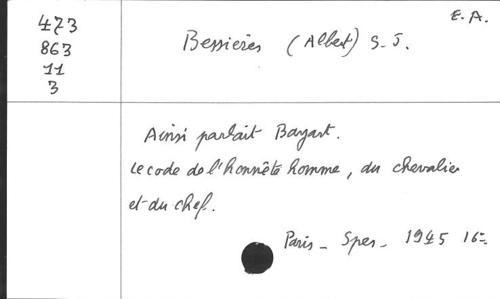 473
863
11
3
E. A.
Bessières (Albert) S. J.
Ainsi parlait Bayart.
Le code de l'honnête homme, du chevalier
et du chef.
Paris - Spes - 1945 16º